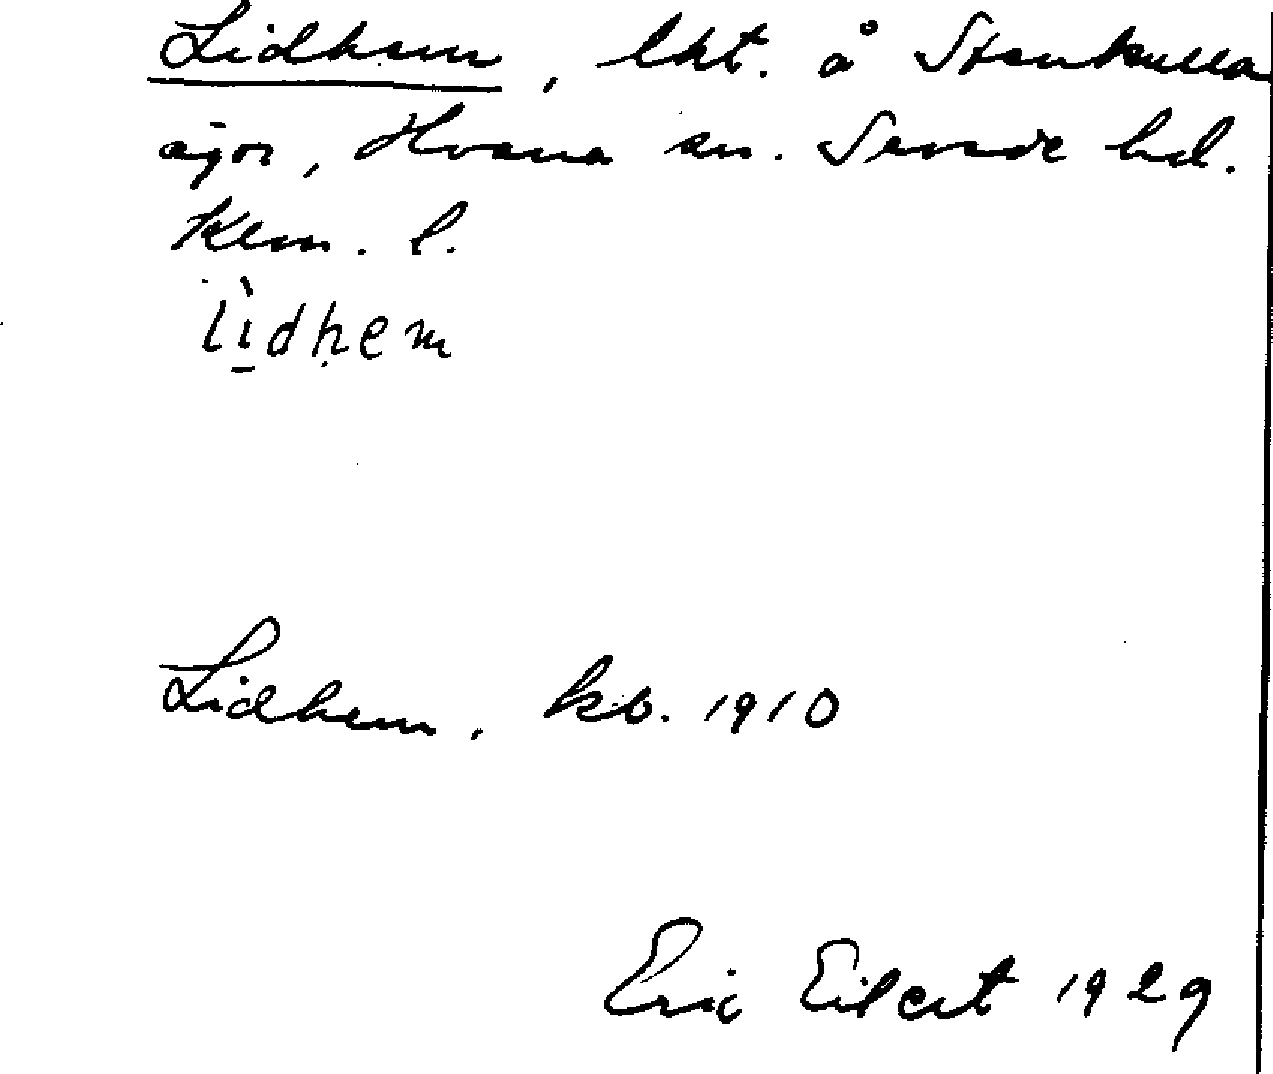 Lidhem, lht. å Stenkulla
ägor, Hvena sn. Sevede hd.
Klm. l.
lìdḥem
Lidhem. kb. 1910
Eric Eilert 1929